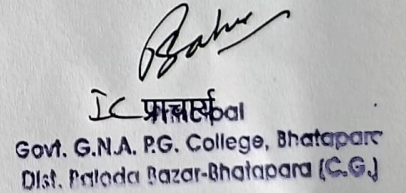 I C प्राचार्य
Govt. G.N.A. P.G. College, Bhatapara
Dist. Baloda Bazar-Bhatapara (C.G.)